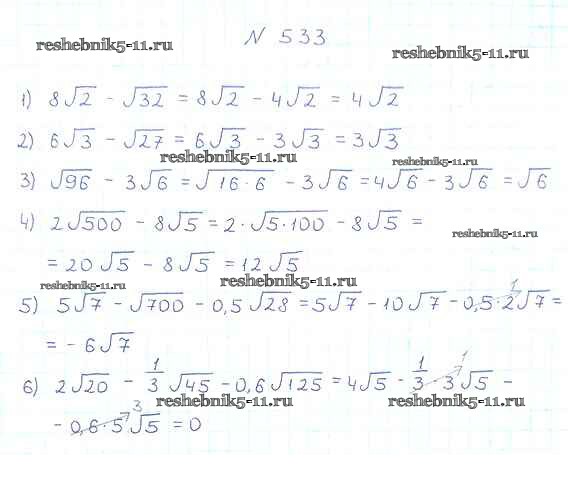 reshebnik5-11.ru
N 533
reshebnik5-11.ru
1) 8√2 - √32 = 8√2 - 4√2 = 4√2
2) 6√3 - √27 = 6√3 - 3√3 = 3√3
reshebnik5-11.ru
reshebnik5-11.ru
3) √96 - 3√6 = √16·6 - 3√6 = 4√6 - 3√6 = √6
4) 2√500 - 8√5 = 2·√5·100 - 8√5 =
reshebnik5-11.ru
= 20√5 - 8√5 = 12√5
reshebnik5-11.ru
reshebnik5-11.ru
5) 5√7 - √700 - 0,5√28 = 5√7 - 10√7 - 0,5·2 1 √7 =
= - 6√7
6) 2√20 - 1/3 √45 - 0,6√125 = 4√5 - 1/3·3 1 √5 -
reshebnik5-11.ru
reshebnik5-11.ru
- 0,6·5 3 √5 = 0